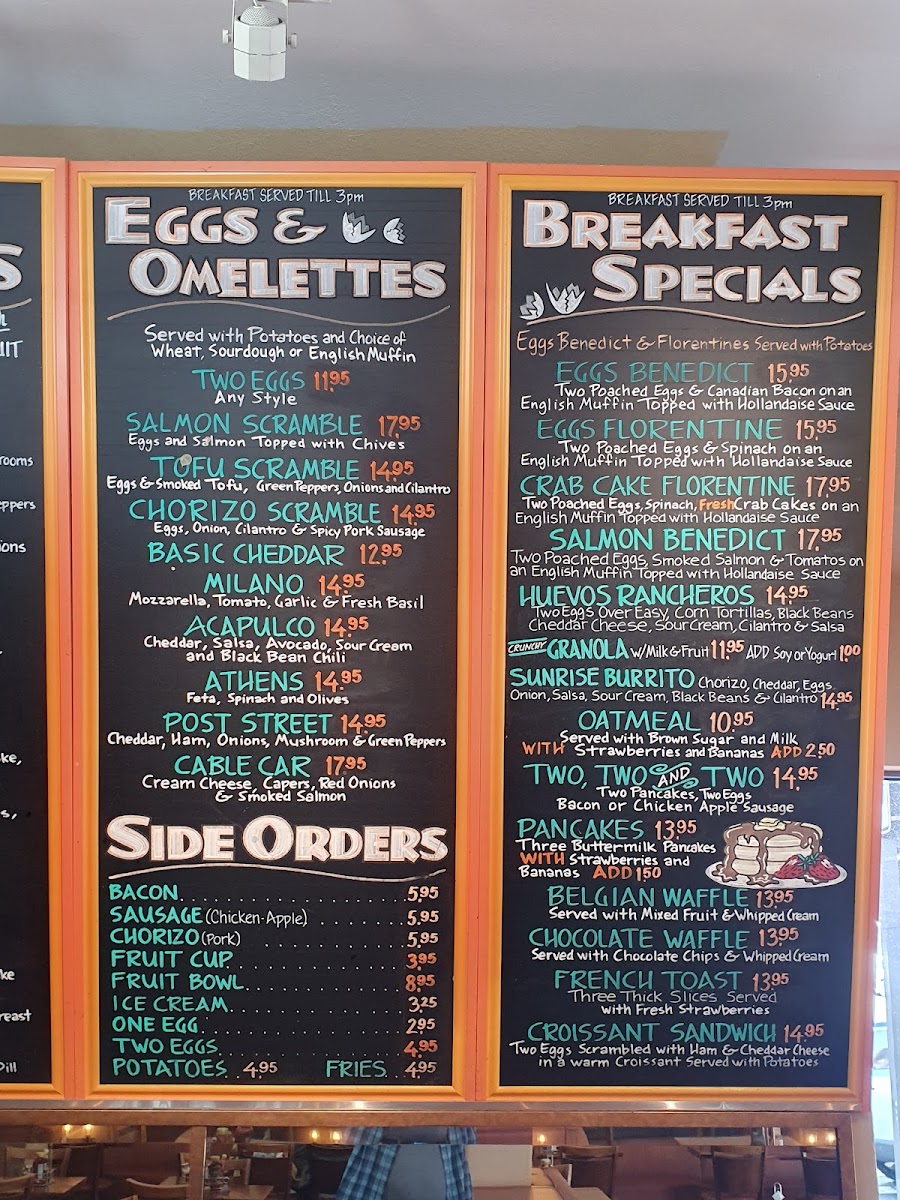 S
UIT
rooms
eppers
ions
ke,
s,
ke
reast
Dill
BREAKFAST SERVED TILL 3pm
EGGS &
OMELETTES
Served with Potatoes and Choice of
Wheat, Sourdough or English Muffin
TWO EGGS 11.95
Any Style
SALMON SCRAMBLE 17.95
Eggs and Salmon Topped with Chives
TOFU SCRAMBLE 14.95
Eggs & Smoked Tofu, Green Peppers, Onions and Cilantro
CHORIZO SCRAMBLE 14.95
Eggs, Onion, Cilantro & Spicy Pork Sausage
BASIC CHEDDAR 12.95
MILANO 14.95
Mozzarella, Tomato, Garlic & Fresh Basil
ACAPULCO 14.95
Cheddar, Salsa, Avocado, Sour Cream
and Black Bean Chili
ATHENS 14.95
Feta, Spinach and Olives
POST STREET 14.95
Cheddar, Ham, Onions, Mushroom & Green Peppers
CABLE CAR 17.95
Cream Cheese, Capers, Red Onions
& Smoked Salmon
SIDE ORDERS
BACON 5.95
SAUSAGE (Chicken-Apple) 5.95
CHORIZO (Pork) 5.95
FRUIT CUP 3.95
FRUIT BOWL 8.95
ICE CREAM 3.25
ONE EGG 2.95
TWO EGGS 4.95
POTATOES 4.95 FRIES 4.95
BREAKFAST SERVED TILL 3pm
BREAKFAST
SPECIALS
Eggs Benedict & Florentines Served with Potatoes
EGGS BENEDICT 15.95
Two Poached Eggs & Canadian Bacon on an
English Muffin Topped with Hollandaise Sauce
EGGS FLORENTINE 15.95
Two Poached Eggs & Spinach on an
English Muffin Topped with Hollandaise Sauce
CRAB CAKE FLORENTINE 17.95
Two Poached Eggs, Spinach, Fresh Crab Cakes on an
English Muffin Topped with Hollandaise Sauce
SALMON BENEDICT 17.95
Two Poached Eggs, Smoked Salmon & Tomatos on
an English Muffin Topped with Hollandaise Sauce
HUEVOS RANCHEROS 14.95
Two Eggs Over Easy, Corn Tortillas, Black Beans
Cheddar Cheese, Sour Cream, Cilantro & Salsa
CRUNCHY GRANOLA w/Milk & Fruit 11.95 ADD Soy or Yogurt 1.00
SUNRISE BURRITO Chorizo, Cheddar, Eggs
Onion, Salsa, Sour Cream, Black Beans & Cilantro 14.95
OATMEAL 10.95
Served with Brown Sugar and Milk
WITH Strawberries and Bananas ADD 2.50
TWO, TWO AND TWO 14.95
Two Pancakes, Two Eggs
Bacon or Chicken Apple Sausage
PANCAKES 13.95
Three Buttermilk Pancakes
WITH Strawberries and
Bananas ADD 1.50
BELGIAN WAFFLE 13.95
Served with Mixed Fruit & Whipped Cream
CHOCOLATE WAFFLE 13.95
Served with Chocolate Chips & Whipped Cream
FRENCH TOAST 13.95
Three Thick Slices Served
with Fresh Strawberries
CROISSANT SANDWICH 14.95
Two Eggs Scrambled with Ham & Cheddar Cheese
in a warm Croissant Served with Potatoes